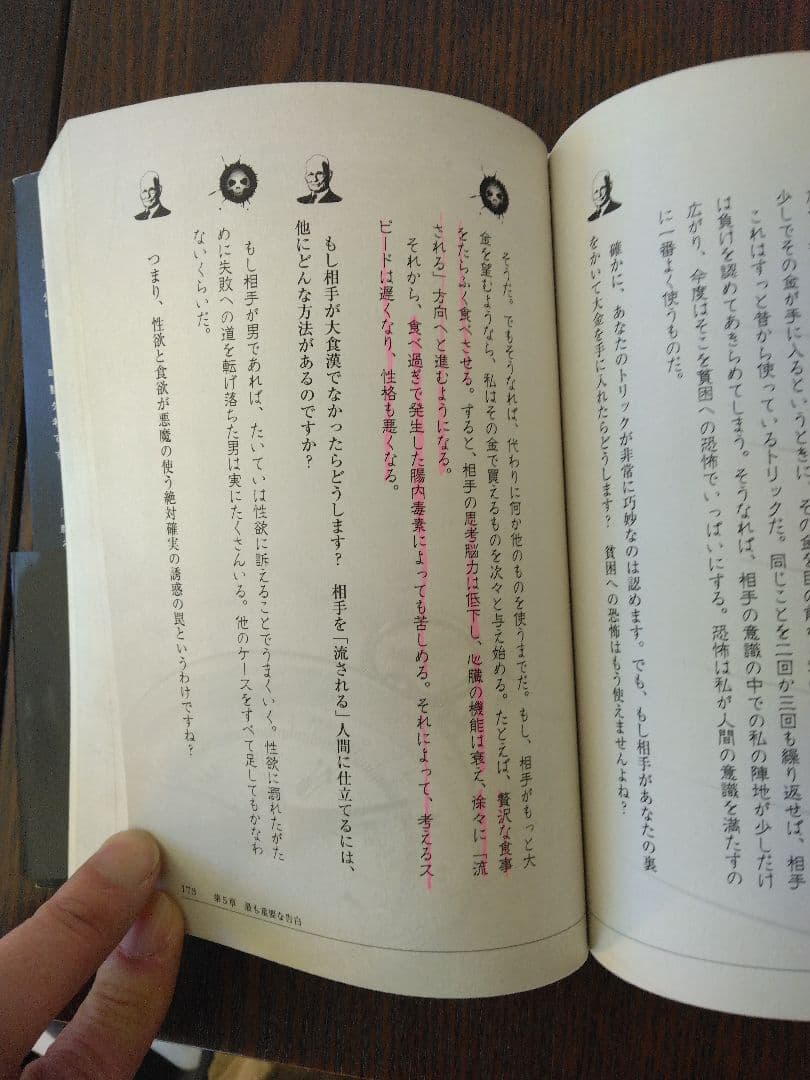 少しでその金が手に入るというときに、その金を目の前
これはずっと昔から使っているトリックだ。同じことを二回か三回も繰り返せば、相手
は負けを認めてあきらめてしまう。そうなれば、相手の意識の中での私の陣地が少しだけ
広がり、今度はそこを貧困への恐怖でいっぱいにする。恐怖は私が人間の意識を満たすの
に一番よく使うものだ。
確かに、あなたのトリックが非常に巧妙なのは認めます。でも、もし相手があなたの裏
をかいて大金を手に入れたらどうします？　貧困への恐怖はもう使えませんよね？
そうだ。でもそうなれば、代わりに何か他のものを使うまでだ。もし、相手がもっと大
金を望むようなら、私はその金で買えるものを次々と与え始める。たとえば、贅沢な食事
をたらふく食べさせる。すると、相手の思考脳力は低下し、心臓の機能は衰え、徐々に「流
される」方向へと進むようになる。
それから、食べ過ぎで発生した腸内毒素によっても苦しめる。それによって、考えるス
ピードは遅くなり、性格も悪くなる。
もし相手が大食漢でなかったらどうします？　相手を「流される」人間に仕立てるには、
他にどんな方法があるのですか？
もし相手が男であれば、たいていは性欲に訴えることでうまくいく。性欲に溺れたがた
めに失敗への道を転げ落ちた男は実にたくさんいる。他のケースをすべて足してもかなわ
ないくらいだ。
つまり、性欲と食欲が悪魔の使う絶対確実の誘惑の罠というわけですね？
175　第5章　最も重要な告白